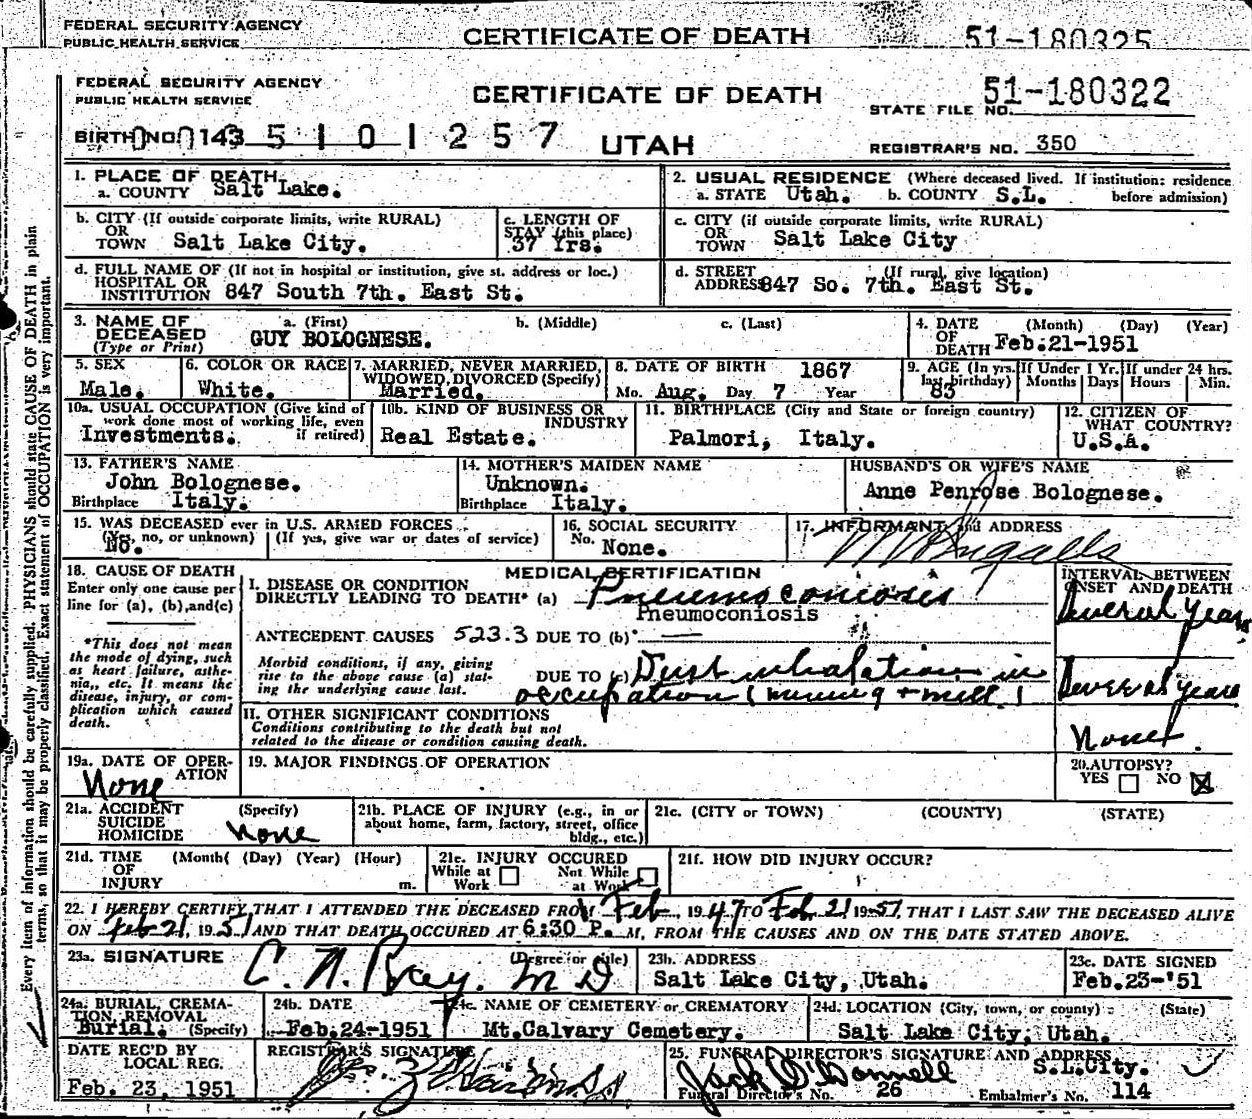 FEDERAL SECURITY AGENCY
PUBLIC HEALTH SERVICE
CERTIFICATE OF DEATH
51-180325
FEDERAL SECURITY AGENCY
PUBLIC HEALTH SERVICE
CERTIFICATE OF DEATH
STATE FILE NO. 51-180322
BIRTH NO. 143 5 1 0 1 2 5 7
UTAH
REGISTRAR'S NO. 350
1. PLACE OF DEATH
a. COUNTY Salt Lake.
2. USUAL RESIDENCE (Where deceased lived. If institution: residence before admission)
a. STATE Utah. b. COUNTY S.L.
b. CITY (If outside corporate limits, write RURAL)
OR TOWN Salt Lake City.
c. LENGTH OF STAY (this place)
37 Yrs.
c. CITY (if outside corporate limits, write RURAL)
OR TOWN Salt Lake City
d. FULL NAME OF (If not in hospital or institution, give st. address or loc.)
HOSPITAL OR INSTITUTION 847 South 7th. East St.
d. STREET (If rural, give location)
ADDRESS 847 So. 7th. East St.
3. NAME OF DECEASED (Type or Print)
a. (First) b. (Middle) c. (Last)
GUY BOLOGNESE.
4. DATE OF DEATH (Month) (Day) (Year)
Feb.21-1951
5. SEX
Male.
6. COLOR OR RACE
White.
7. MARRIED, NEVER MARRIED, WIDOWED, DIVORCED (Specify)
Married.
8. DATE OF BIRTH 1867
Mo. Aug. Day 7 Year
9. AGE (In yrs. last birthday) If Under 1 Yr. Months Days If under 24 hrs. Hours Min.
83
10a. USUAL OCCUPATION (Give kind of work done most of working life, even if retired)
Investments.
10b. KIND OF BUSINESS OR INDUSTRY
Real Estate.
11. BIRTHPLACE (City and State or foreign country)
Palmori, Italy.
12. CITIZEN OF WHAT COUNTRY?
U.S.A.
13. FATHER'S NAME
John Bolognese.
Birthplace Italy.
14. MOTHER'S MAIDEN NAME
Unknown.
Birthplace Italy.
HUSBAND'S OR WIFE'S NAME
Anne Penrose Bolognese.
15. WAS DECEASED ever in U.S. ARMED FORCES
(Yes, no, or unknown) (If yes, give war or dates of service)
No.
16. SOCIAL SECURITY
No. None.
17. INFORMANT and ADDRESS
Ingalls
18. CAUSE OF DEATH
Enter only one cause per line for (a), (b), and (c)
*This does not mean the mode of dying, such as heart failure, asthenia,, etc. It means the disease, injury, or complication which caused death.
MEDICAL CERTIFICATION
I. DISEASE OR CONDITION DIRECTLY LEADING TO DEATH* (a) Pneumoconiosis
Pneumoconiosis
ANTECEDENT CAUSES 523.3 DUE TO (b)
Morbid conditions, if any, giving rise to the above cause (a) stating the underlying cause last.
DUE TO (c) Dust inhalation in
occupation (mining + mill.)
II. OTHER SIGNIFICANT CONDITIONS
Conditions contributing to the death but not related to the disease or condition causing death.
INTERVAL BETWEEN ONSET AND DEATH
Several years
Several years
None.
19a. DATE OF OPERATION
None
19. MAJOR FINDINGS OF OPERATION
20. AUTOPSY?
YES NO
21a. ACCIDENT SUICIDE HOMICIDE (Specify)
None
21b. PLACE OF INJURY (e.g., in or about home, farm, factory, street, office bldg., etc.)
21c. (CITY or TOWN) (COUNTY) (STATE)
21d. TIME OF INJURY (Month( (Day) (Year) (Hour) m.
21e. INJURY OCCURED
While at Work Not While at Work
21f. HOW DID INJURY OCCUR?
22. I HEREBY CERTIFY THAT I ATTENDED THE DECEASED FROM Feb, 1947 TO Feb 21 1951, THAT I LAST SAW THE DECEASED ALIVE
ON Feb 21, 1951 AND THAT DEATH OCCURED AT 6:30 P. M, FROM THE CAUSES AND ON THE DATE STATED ABOVE.
23a. SIGNATURE (Degree or title)
C. N. Ray. M D
23b. ADDRESS
Salt Lake City, Utah.
23c. DATE SIGNED
Feb.23-'51
24a. BURIAL, CREMATION, REMOVAL (Specify)
Burial.
24b. DATE
Feb.24-1951
24c. NAME OF CEMETERY or CREMATORY
Mt.Calvary Cemetery.
24d. LOCATION (City, town, or county) (State)
Salt Lake City, Utah.
DATE REC'D BY LOCAL REG.
Feb. 23, 1951
REGISTRAR'S SIGNATURE
25. FUNERAL DIRECTOR'S SIGNATURE AND ADDRESS
Jack O'Donnell S.L.City.
Funeral Director's No. 26 Embalmer's No. 114
Every item of information should be carefully supplied. PHYSICIANS should state CAUSE OF DEATH in plain
terms, so that it may be properly classified. Exact statement of OCCUPATION is very important.